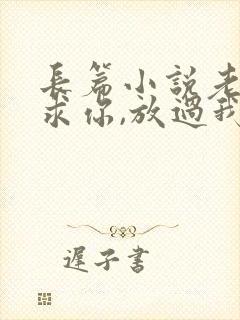 長篇小說老
求你,放過我
遲子書